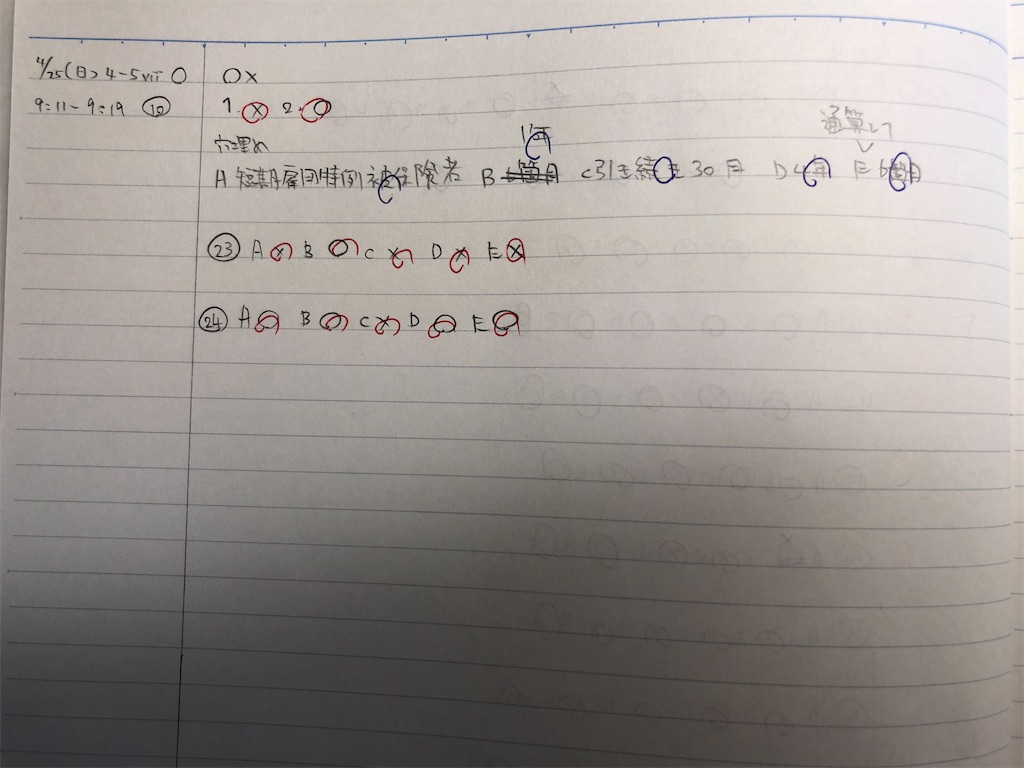 4/25(日) 4-5 vii ○
○×
9:11~9:19 ⑩
1 × 2. ○
穴埋め
1年
通算して
A 短期雇用特例被保険者 B C 31日 30日 D 4年 E 6箇月
㉓ A × B ○ C × D × E ×
㉔ A ○ B ○ C × D ○ E ○